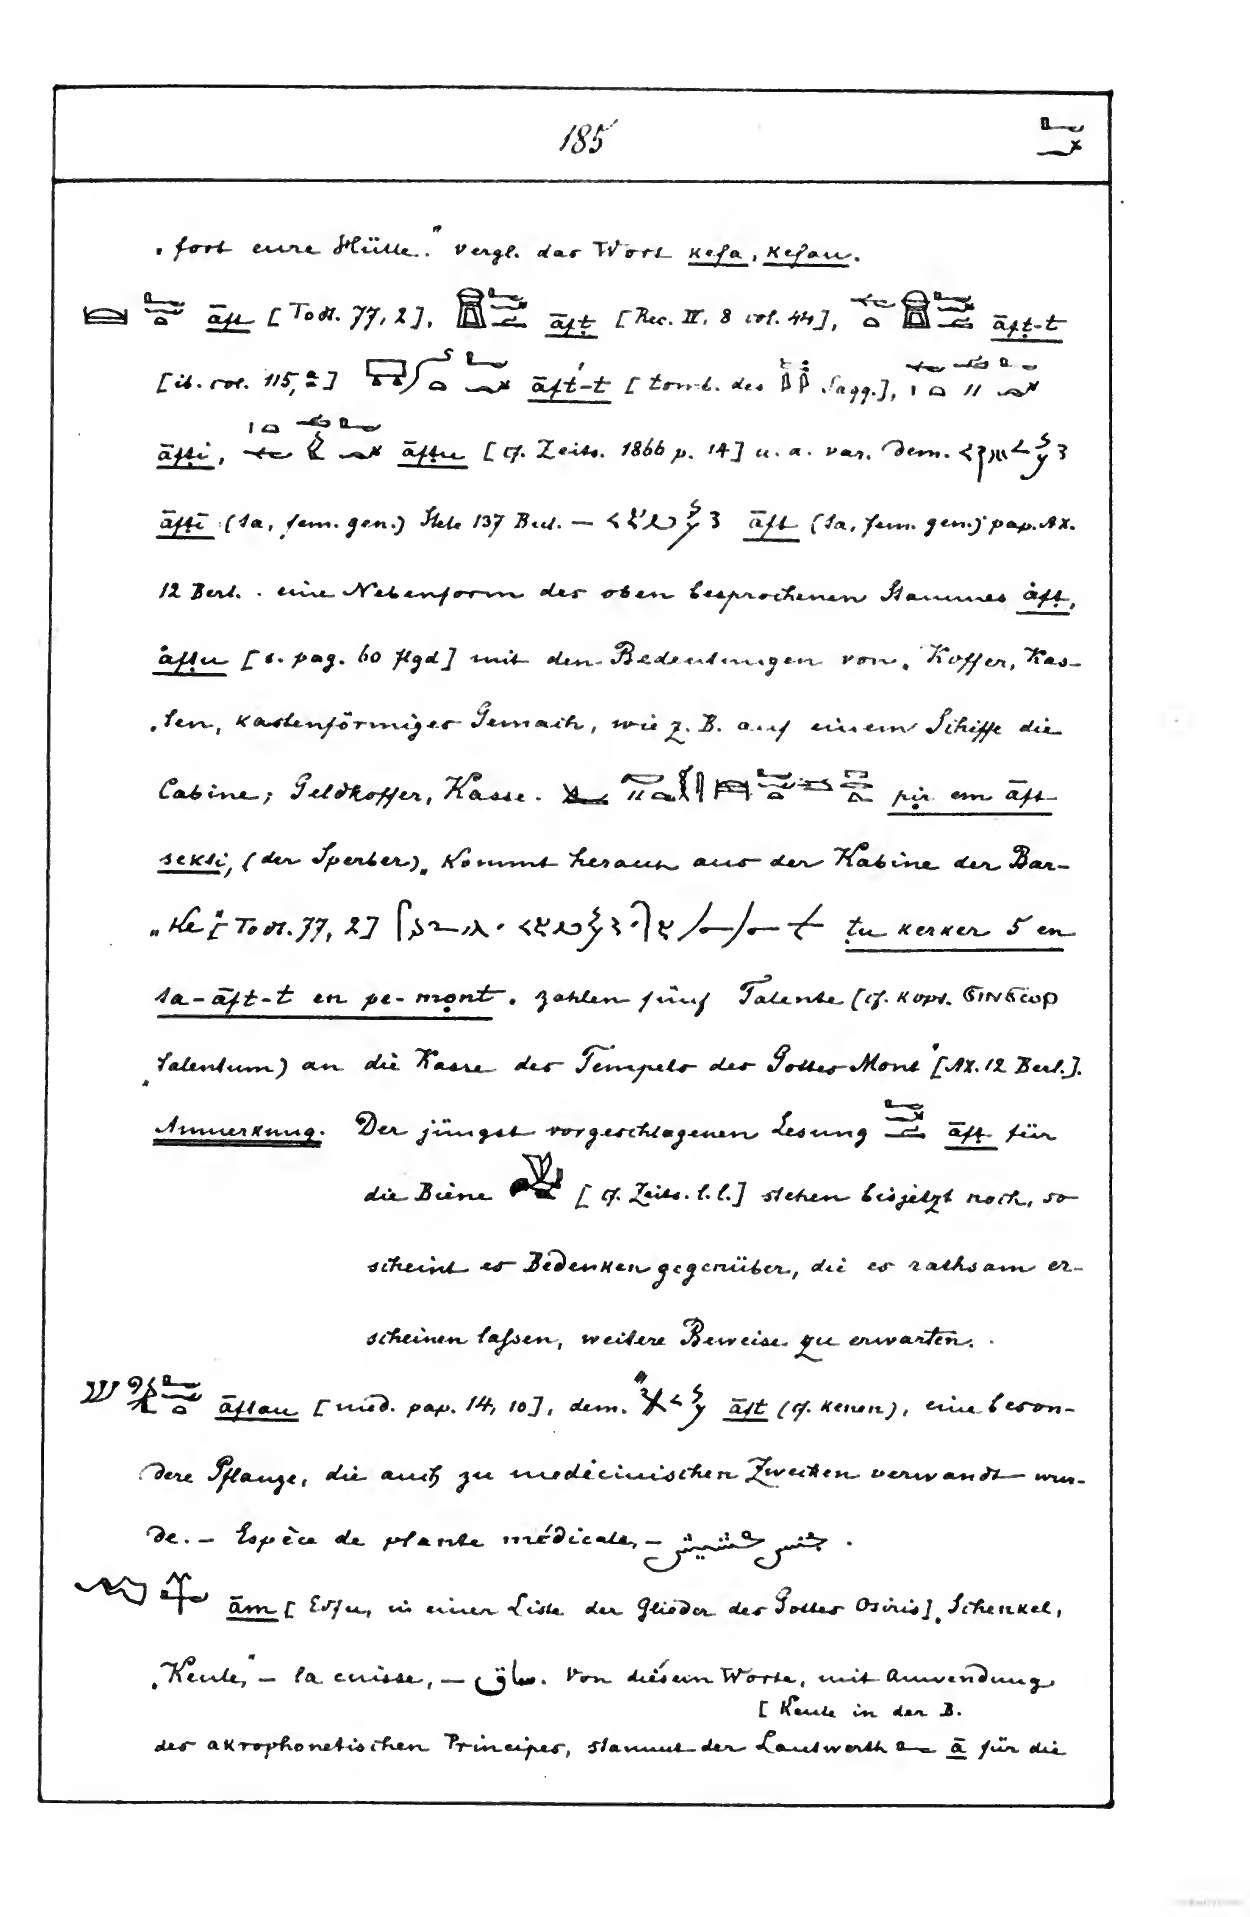 185
„fort eure Hütte.“ vergl. das Wort kefa, kefau.
āft [Todt. 77, 2], āfṭ [Rec. IV, 8 col. 44], āfṭ-t
[ib. col. 115, a] āft́-t [tomb. des Sagg.],
āfṭi, āfṭu [cf. Zeits. 1866 p. 14] u. a. var. dem.
āfṭi (ta, fem. gen.) Stele 137 Berl. — āft (ta, fem. gen.) pap. AX.
12 Berl. eine Nebenform des oben besprochenen Stammes ȧfṭ,
ȧfṭu [s. pag. 60 flgd] mit den Bedeutungen von „Koffer, Kas-
„ten, kastenförmiges Gemach, wie z. B. auf einem Schiffe die
Cabine; Geldkoffer, Kasse. pịr em āft
sekti, (der Sperber) „kommt heraus aus der Kabine der Bar-
„ke“ [Todt. 77, 2] ṭu kerker 5 en
ta-āft-t en pe-mont „zahlen fünf Talente (cf. kopt. ϭⲓⲛϭⲱⲣ
„talentum) an die Kasse des Tempels des Gottes Mont“ [AX. 12 Berl.].
Anmerkung. Der jüngst vorgeschlagenen Lesung āfṭ für
die Biene [cf. Zeits. l. l.] stehen bisjetzt noch, so
scheint es Bedenken gegenüber, die es rathsam er-
scheinen lassen, weitere Beweise zu erwarten.
āftau [med. pap. 14, 10], dem. āft (cf. kenen), eine beson-
dere Pflanze, die auch zu medicinischen Zwecken verwandt wur-
de. — Espèce de plante médicale, — جنس حشيش .
ām [Edfu, in einer Liste der Glieder des Gottes Osiris] „Schenkel,
„Keule,“ — la cuisse, — ساق. Von diesem Worte, mit Anwendung
[Keule in der B.
des akrophonetischen Principes, stammt der Lautwerth ā für die